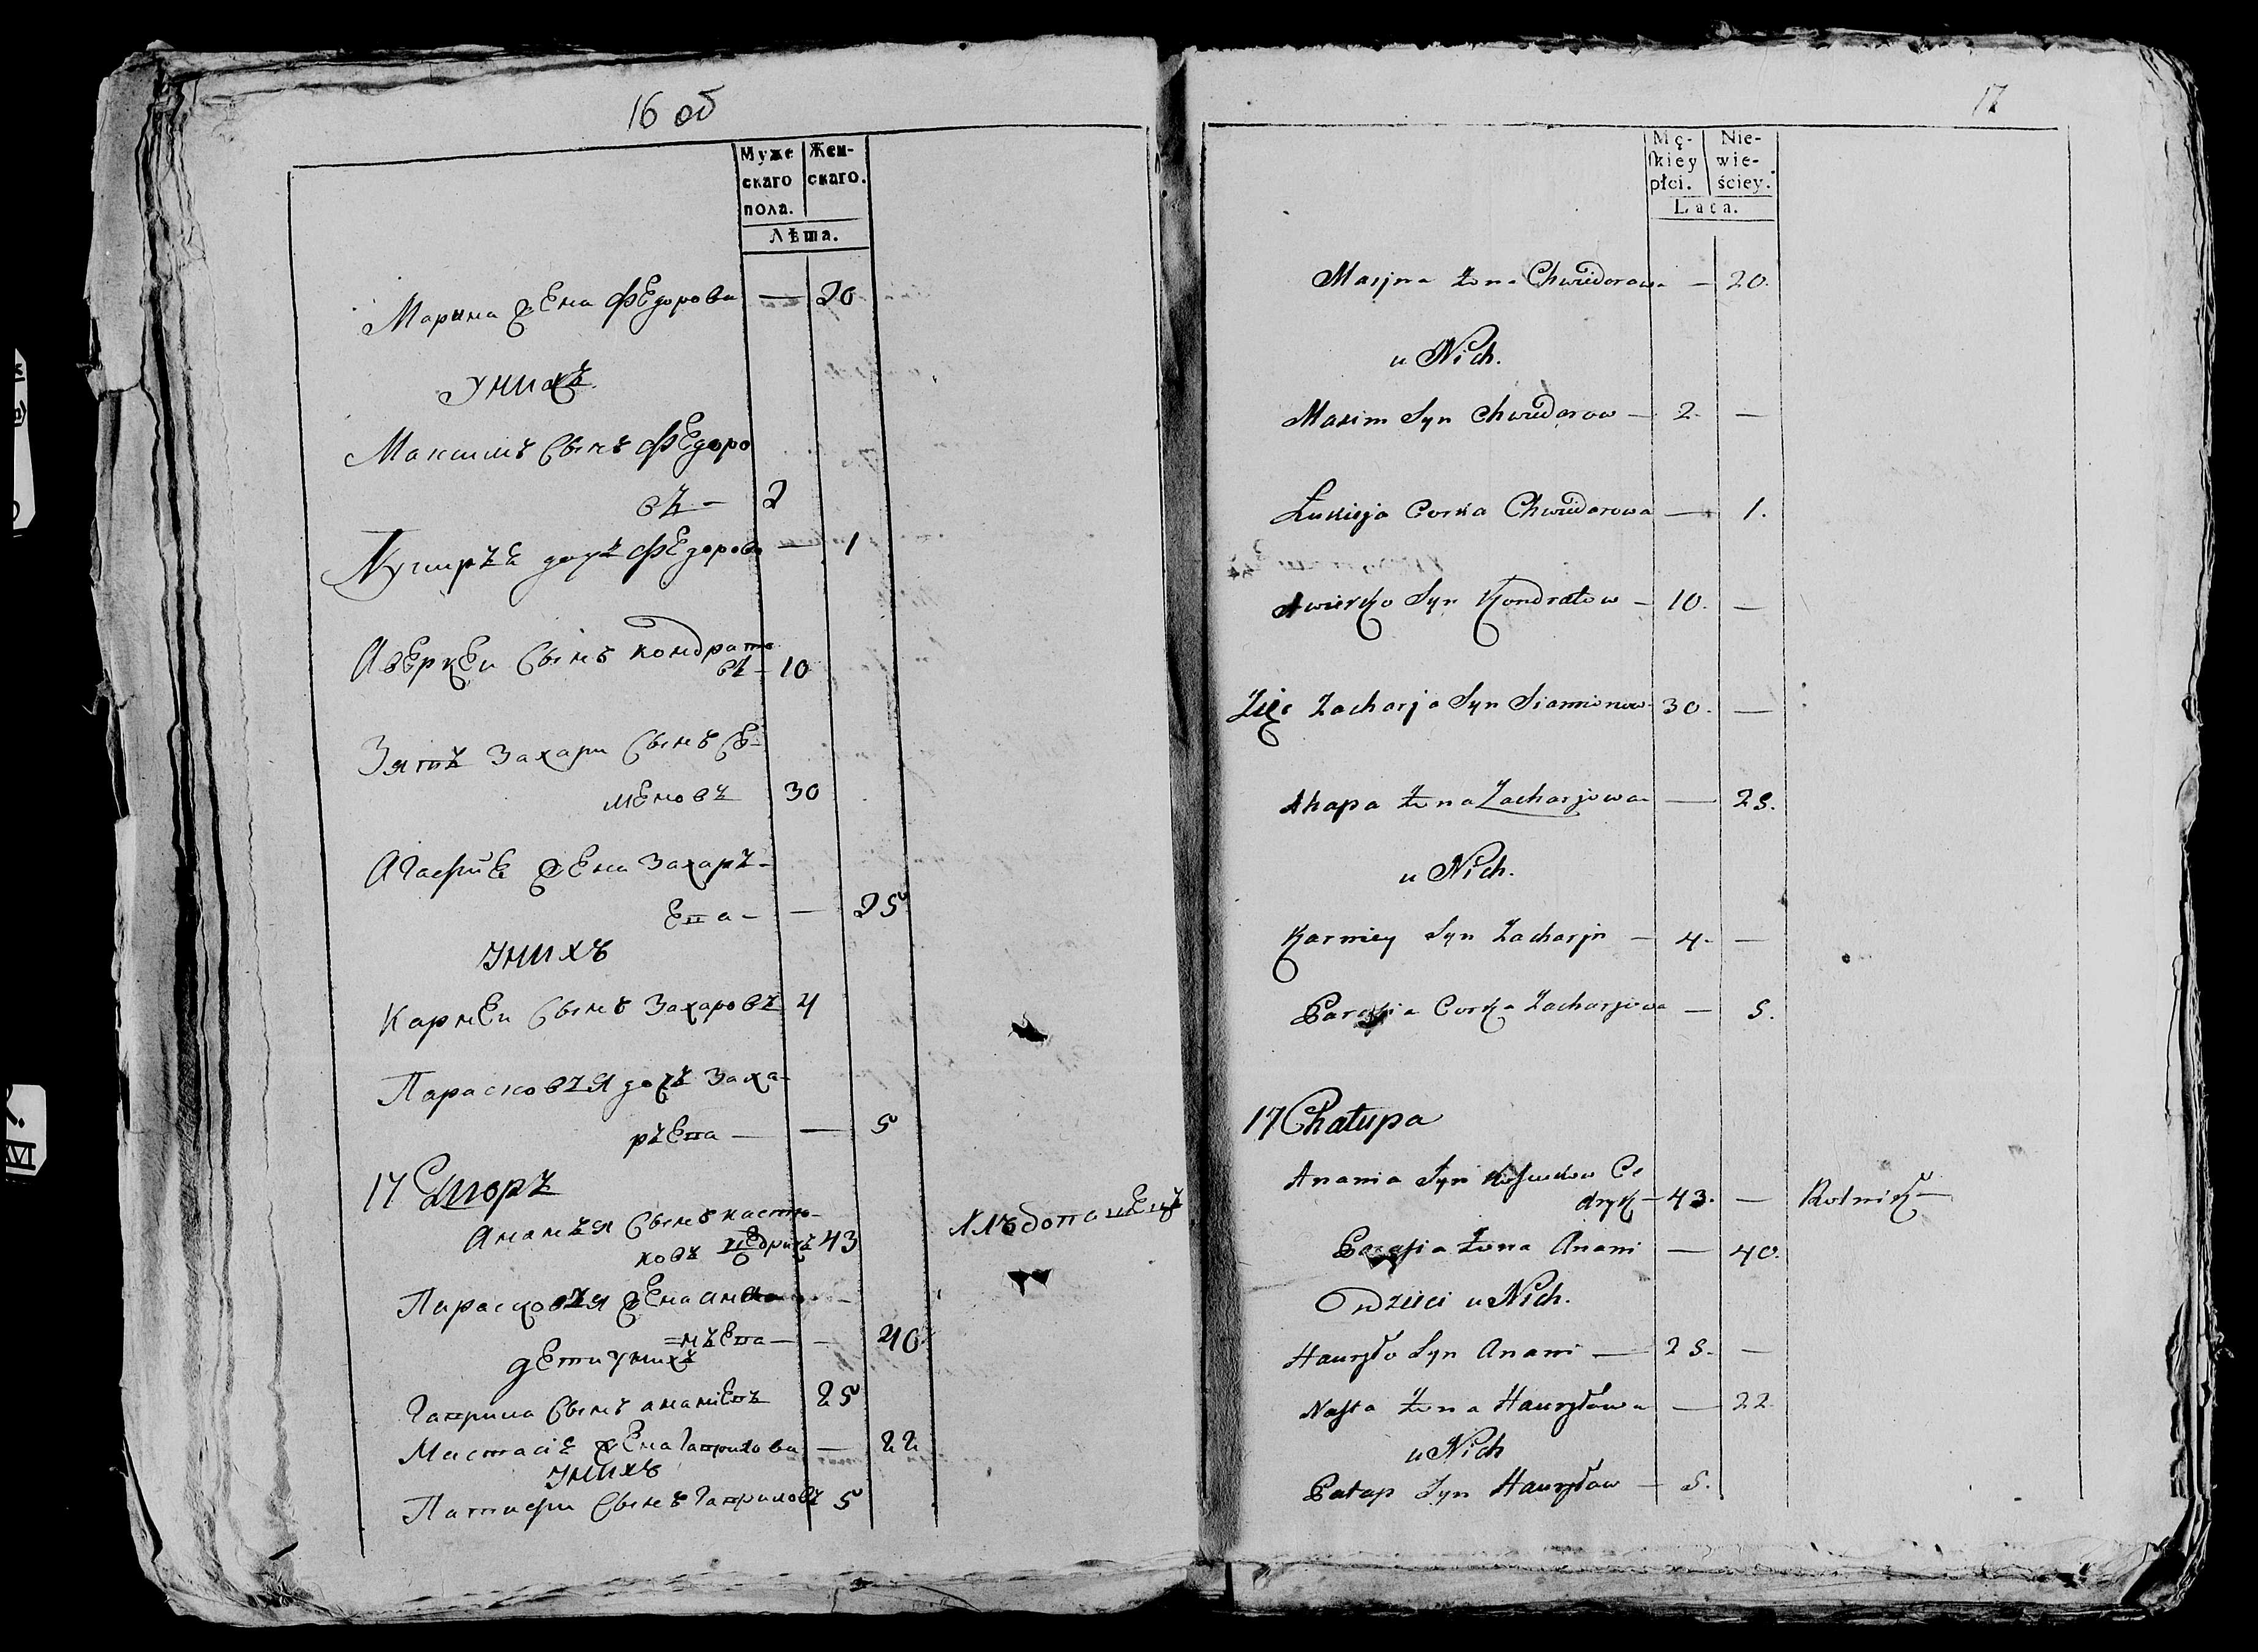 16 об
Муже
скаго
пола.
Жен-
скаго.
Лѣта.
Марина жена Федорова — 20
У нихъ
Максимъ сынъ Федоро
въ — 2
дочь Федорова — 1
Аверкеи сынъ Кондрато
въ — 10
Зять Захари сынъ Се-
меновъ 30
Агафия жена Захарь-
ева — — 25
У нихъ
Карнеи сынъ Захаровъ 4
Парасковья дочь Заха-
рьева — — 5
17 Дворъ
Ананья сынъ Кастю-
ковъ Цедрикъ 43
Хлебопашецъ
Парасковья жена Анa
=ньева — — 40
дети у нихъ
Гаврила сынъ Ананiевъ 25
Настасiя жена Гаврилова — 22
У нихъ
сынъ Гавриловъ 5
17
Mę-
ſkiey
płci.
Nie-
wie-
ściey.
Lata.
Maryna żona Chwiedorowa — 20.
u Nich.
Maxim Syn Chwiedorow — 2. —
Łukieja Corka Chwiedorowa — 1.
Awierko Syn Kondratow — 10. —
Zięć Zacharja Syn Siamionow 30. —
Ahapa żona Zacharjowa — 25.
u Nich.
Karniey Syn Zacharjn — 4. —
Parasia Corka Zacharjowa — 5.
17 Chałupa
Anania Syn Ce
dryk — 43. — Rolnik —
Parasia żona Anani — 40.
dzieci u Nich.
Hauryło Syn Anani — 25. —
Nasta żona Hauryłowa — 22.
u Nich
Patap Syn Hauryłow — 5.